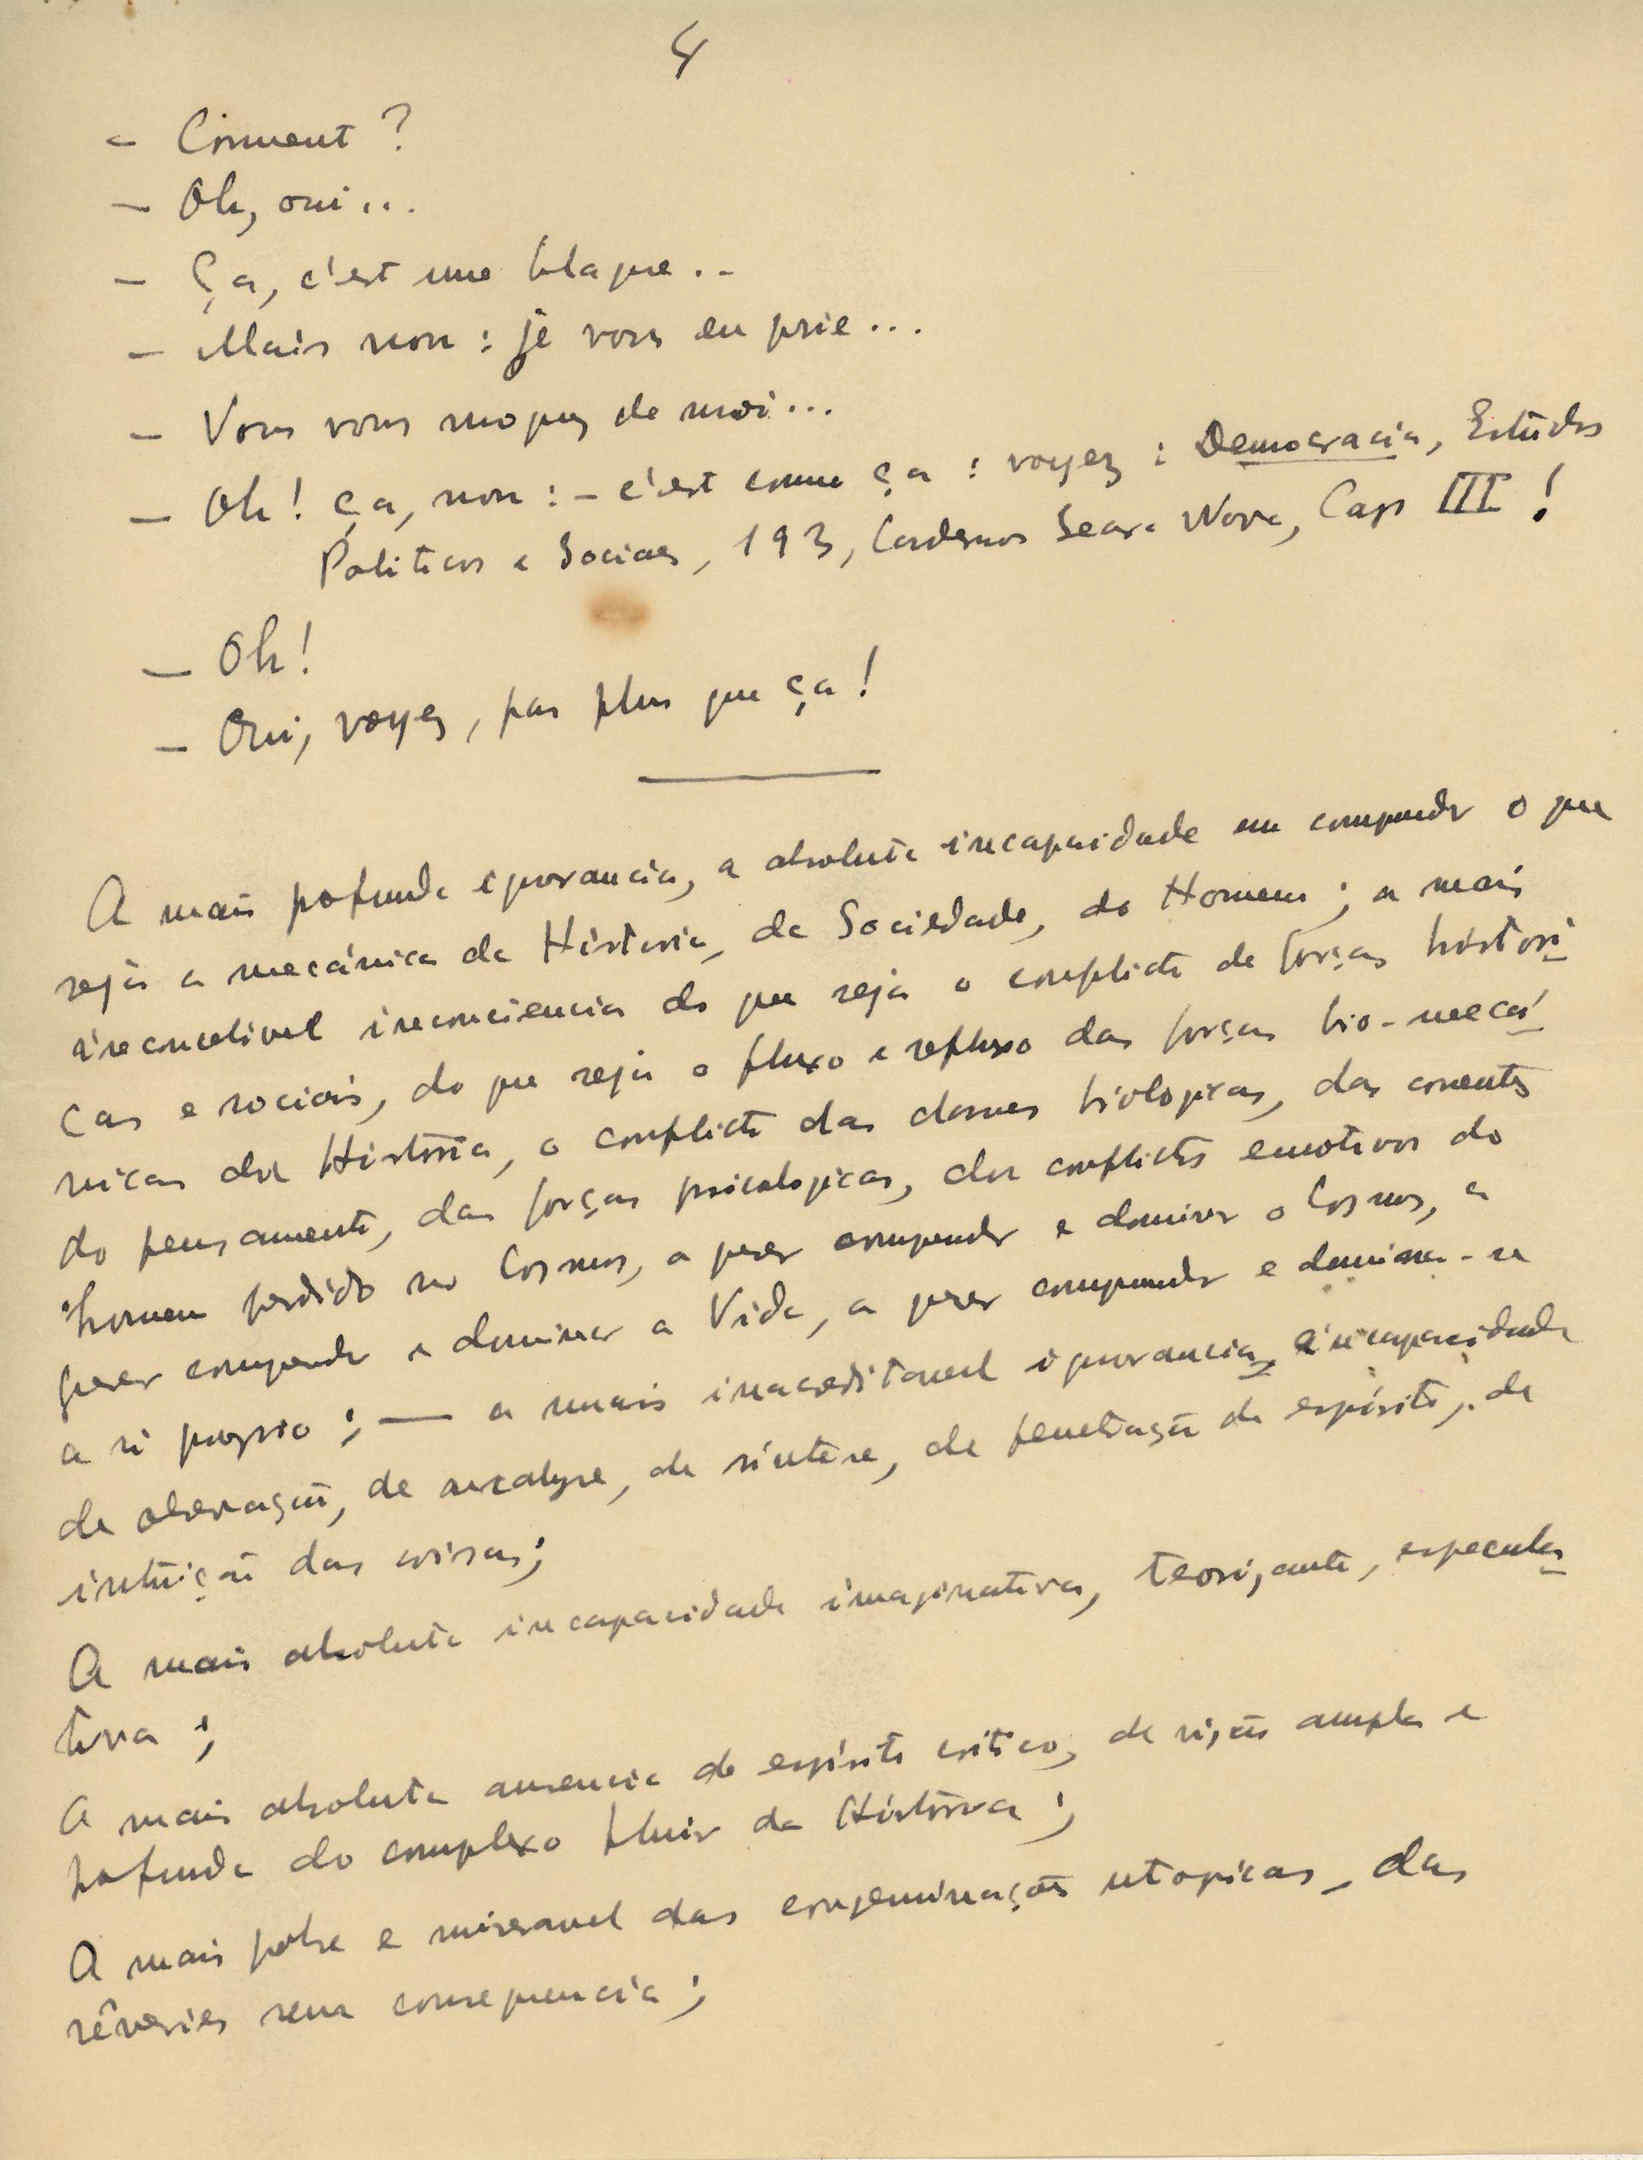 4
- Comment ?
- Oh, oui...
- Ça, c'est une blague..
- Mais non : je vous en prie...
- Vous vous moquez de moi...
- Oh! ça, non : - c'est comme ça : voyez : Democracia, Estudos
Politicos e Sociaes, 193, Cadernos Seara Nova, Cap III !
- Oh!
- Oui, voyez, pas plus que ça!
A mais profunda ignorancia, a absoluta incapacidade em compreender o que
seja a mecánica da História, da Sociedade, do Homem; a mais
inconcebivel inconciencia do que seja o conflicto de forças histori-
cas e sociais, do que seja o fluxo e refluxo das forças bio-mecá-
nicas da História, o conflicto das classes biologicas, das correntes
do pensamento, das forças psicologicas, dos conflictos emotivos do
homem perdido no Cosmos, a querer compreender e dominar o Cosmos, a
querer compreender e dominar a Vida, a querer compreender e dominar-se
a si proprio ; — a mais inacreditavel ignorancia, e incapacidade
de observação, de analyse, de síntese, de penetração de espírito, de
intuição das coisas;
A mais absoluta incapacidade imaginativa, teorizante, especula-
tiva ;
A mais absoluta ausencia de espírito critico, de visão ampla e
profunda do complexo fluir da História ;
A mais pobre e miseravel das congeminações utopicas, das
rêveries sem consequencia ;